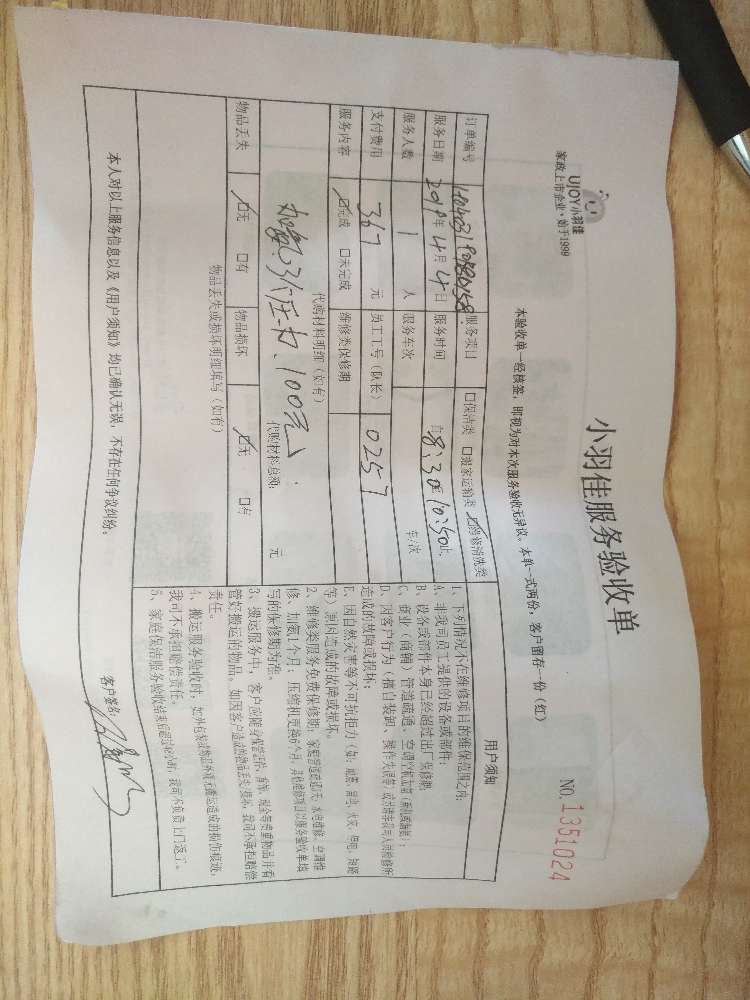 UJOY小羽佳
家政上市企业·始于1999
小羽佳服务验收单
NO.1351024
本验收单一经核签，即视为对本次服务验收无异议。本单一式两份，客户留存一份（红）
订单编号 服务项目 □保洁类 □搬家运输类 ☑维修清洗类
服务日期 2019年4月4日 服务时间 自8:30至10:50止
服务人数 1 人 服务车次 车/次
支付费用 367 元 员工工号（队长） 0257
服务内容 ☑完成 □未完成 维修类保修期
代购材料明细（如有）
加氟3个压力、100元
代购材料总额： 元
物品丢失 ☑无 □有 物品损坏 ☑无 □有
物品丢失或损坏明细填写（如有）
用户须知
1、下列情况不在维修项目的维保范围之内：
A、非我司员工提供的设备或部件；
B、设备或部件本身已经超过出厂保修期；
C、商业（商铺）管道疏通、空调
D、因客户行为（擅自装卸、操作失误等）或
造成的故障或损坏；
E、因自然灾害等不可抗拒力（如：地震、雷击、火灾
等）原因造成的故障或损坏。
2、维修类服务免费保修期：家庭管道疏通
修、加氟1个月；压缩机更换6个月，其他维修项目以服务验收单填
写的保修期为准。
3、搬运服务中，客户应随身保管证件、首饰、现金等贵重物品并看
管好搬运的物品。如因客户造成的物品丢失、损坏，我司不承担赔偿
责任。
4、搬运服务验收时，如外包装或物品外观无搬运造成的损伤痕迹，
我司不承担赔偿责任。
5、家庭保洁服务验收结束后超过2小时，我司不负责上门返工。
本人对以上服务信息以及《用户须知》均已确认无误，不存在任何争议纠纷。
客户签名：